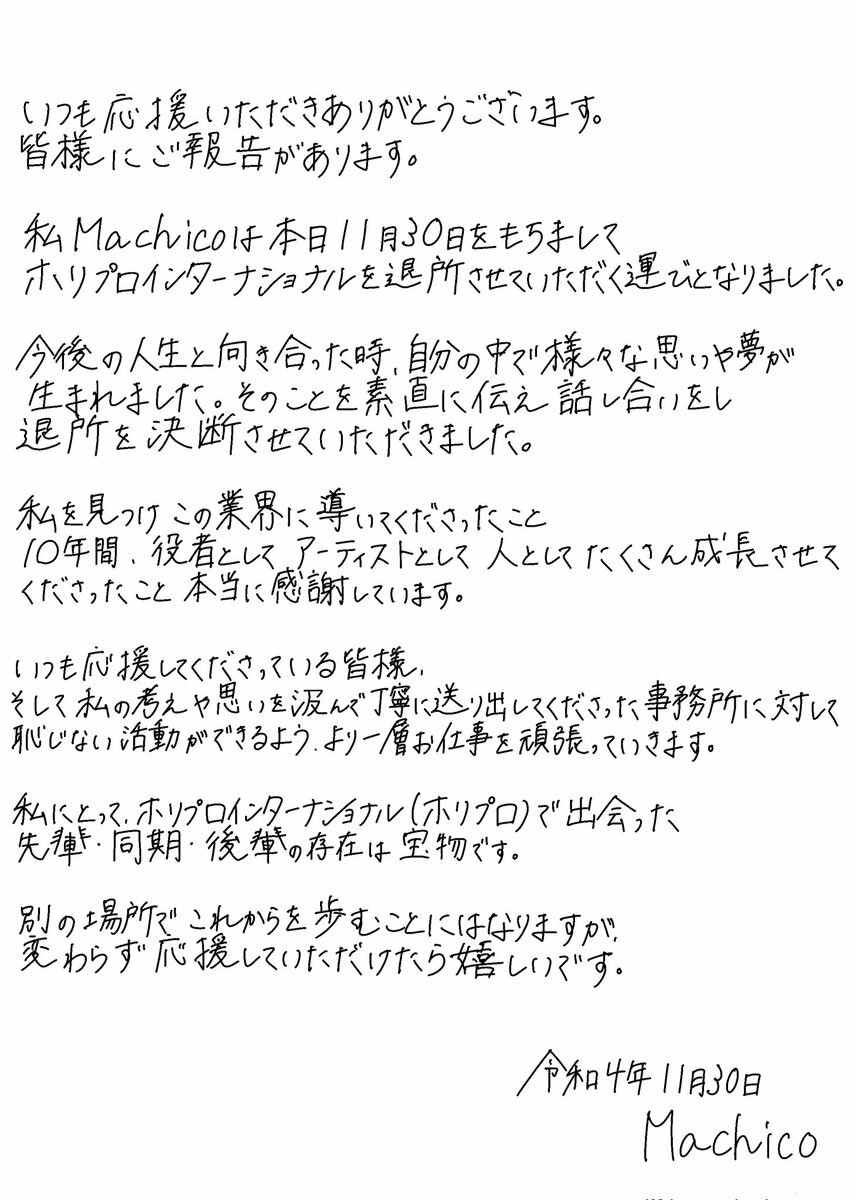 いつも応援いただきありがとうございます。
皆様にご報告があります。
私Machicoは本日11月30日をもちまして
ホリプロインターナショナルを退所させていただく運びとなりました。
今後の人生と向き合った時、自分の中で様々な思いや夢が
生まれました。そのことを素直に伝え話し合いをし
退所を決断させていただきました。
私を見つけこの業界に導いてくださったこと
10年間、役者として アーティストとして 人として たくさん成長させて
くださったこと 本当に感謝しています。
いつも応援してくださっている皆様、
そして私の考えや思いを汲んで丁寧に送り出してくださった事務所に対して
恥じない活動ができるよう、より一層お仕事を頑張っていきます。
私にとって、ホリプロインターナショナル(ホリプロ)で出会った
先輩・同期・後輩の存在は宝物です。
別の場所でこれからを歩むことにはなりますが、
変わらず応援していただけたら嬉しいです。
令和4年11月30日
Machico